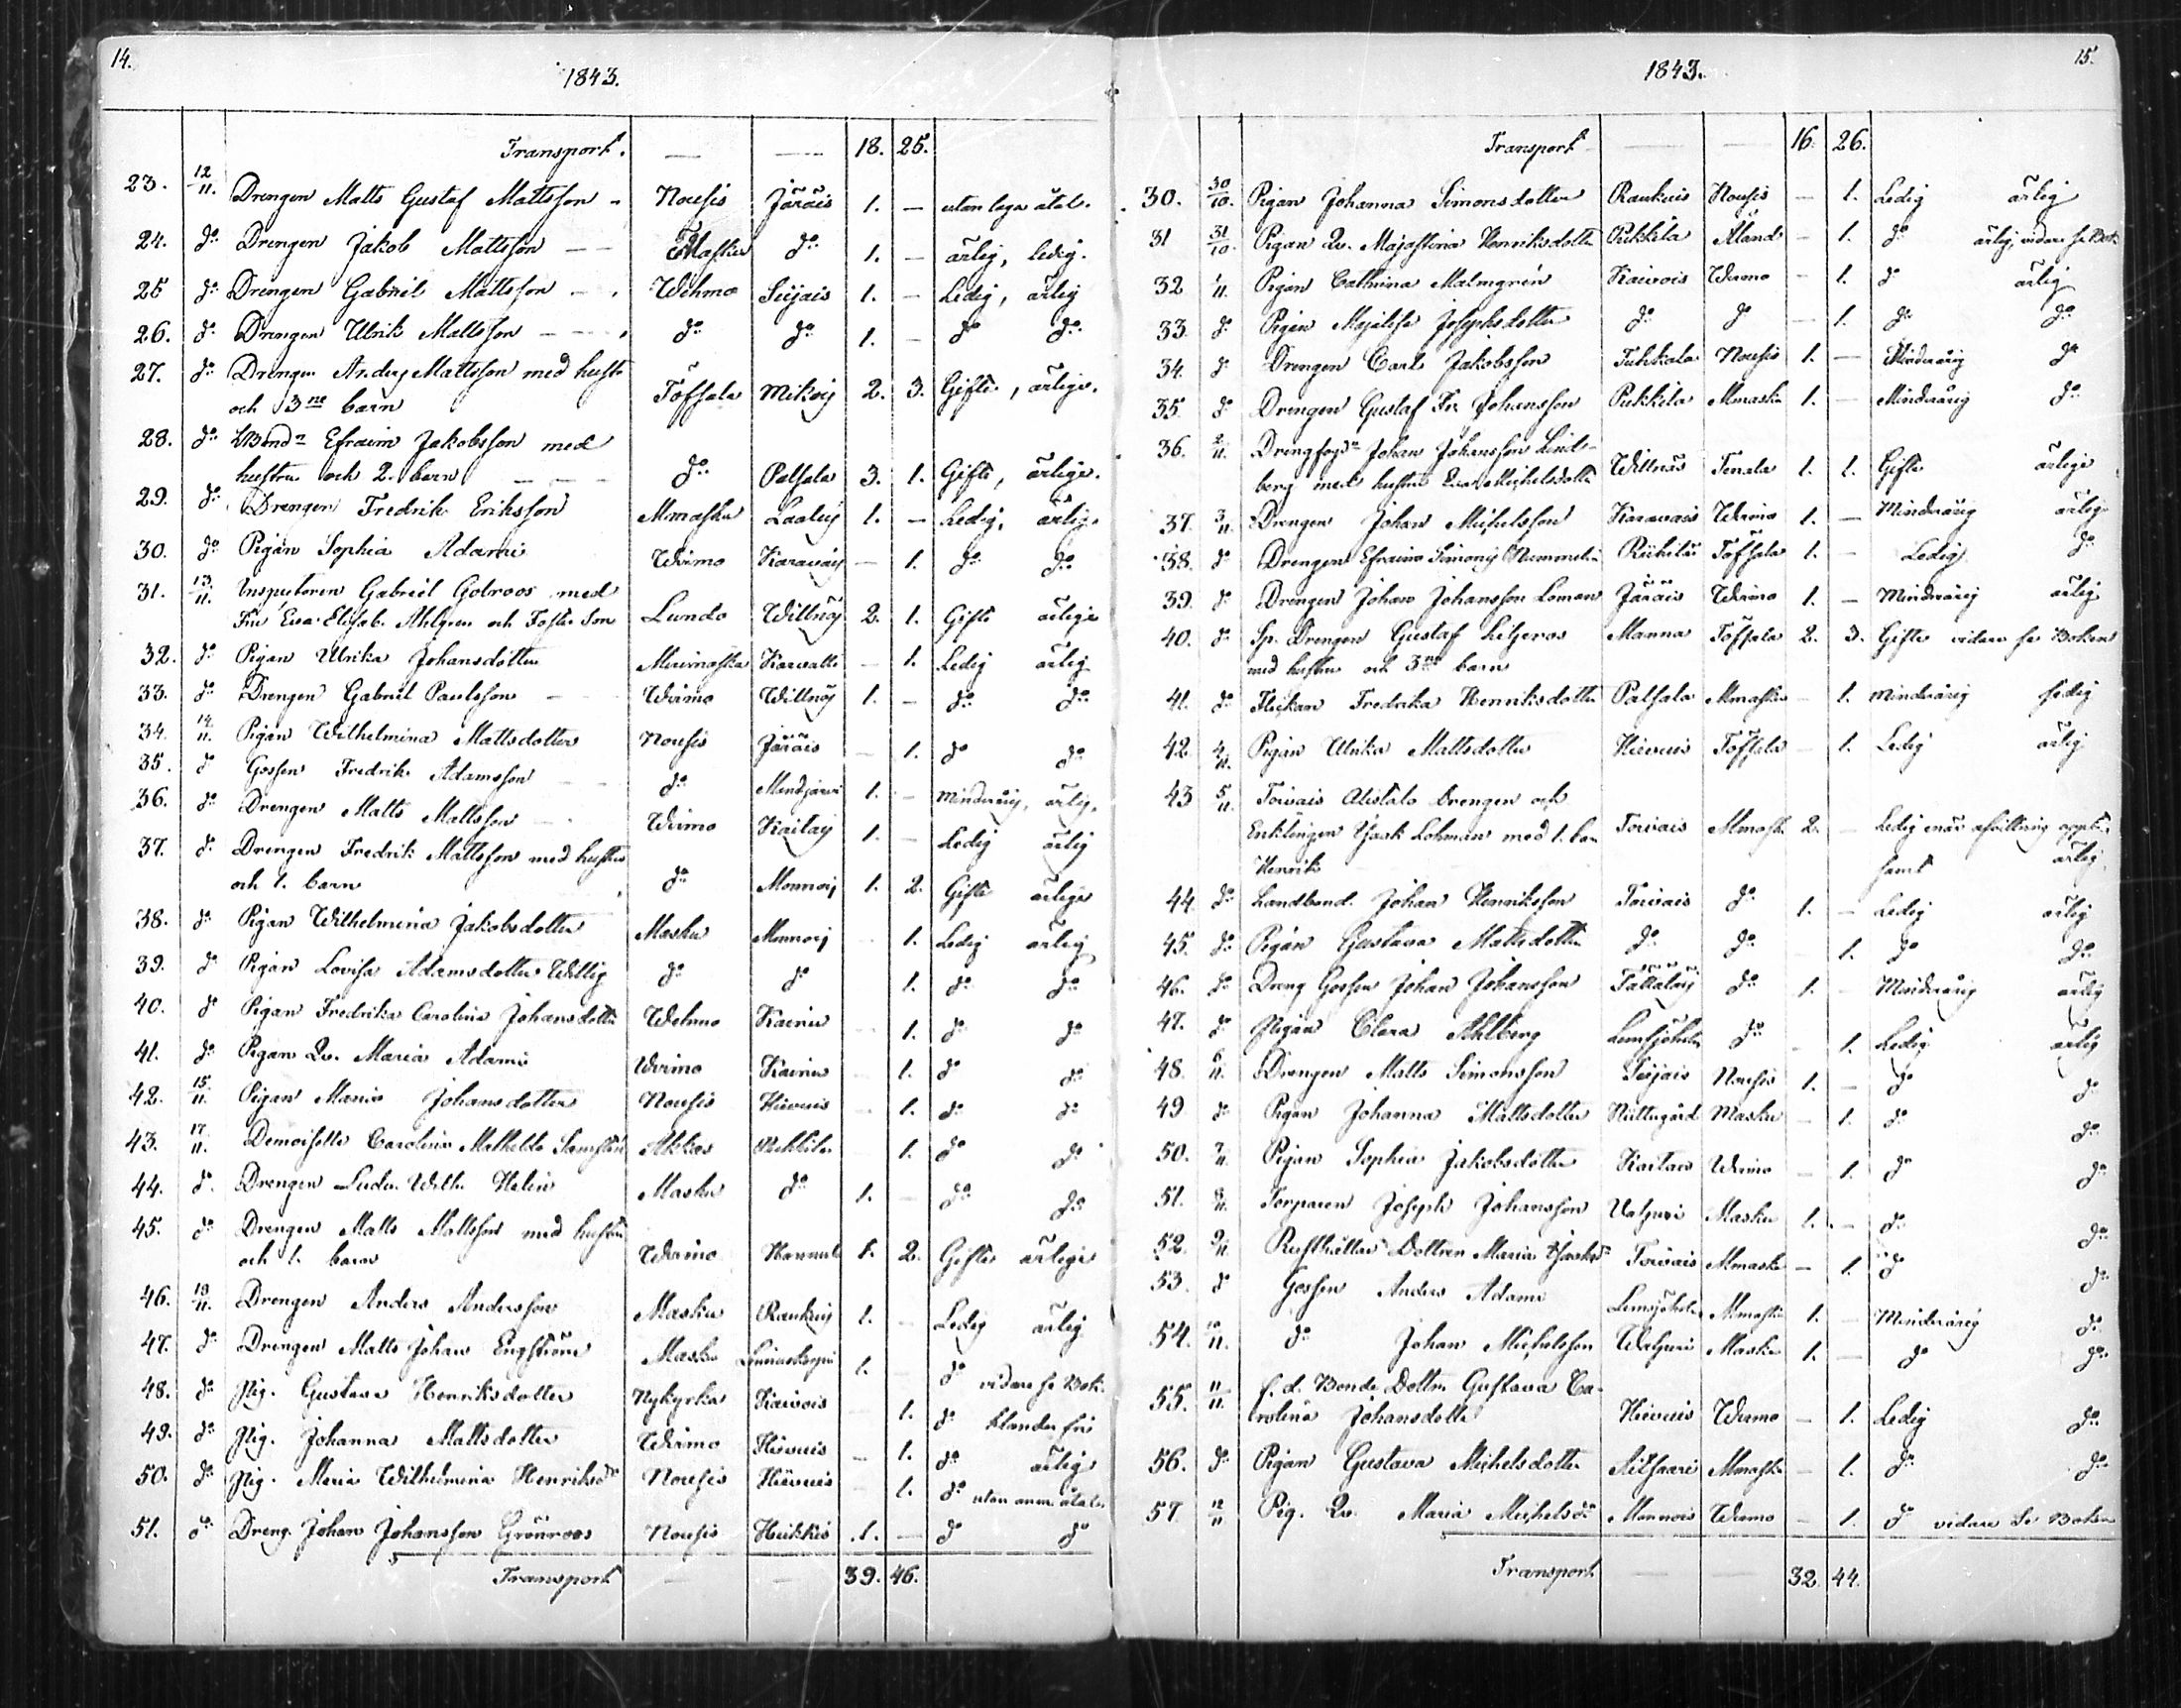 14.
1843.
Transport. — — 18. 25.
23. 12/11. Drengen Matts Gustaf Mattsson - Nousis Järäis 1. — utan laga åtal.
24. do Drengen Jakob Mattsson — Masku do 1. — ärlig, ledig.
25 do Drengen Gabriel Mattsson — Wehmo Seijais 1. — Ledig, ärlig
26. do Drengen Ulrik Mattsson — do do 1. — do do
27. do Drengen Anders Mattsson med hustr
och 3ne barn Töfsala Mikois 2. 3. Gifte, ärlige.
28. do Efraim Jakobsson med
hustru och 2. barn — do Palsala 3. 1. Gifte, ärlige.
29. do Drengen Fredrik Eriksson Mmasku 1. — Ledig, ärlig.
30. do Pigan Sophia Adami Wirmo Karavais — 1. do do
31. 13/11. Inspectoren Gabriel Golroos med
Fru Eva Elisab. Ahlgren och Foster Son Lundo Willnäs 2. 1. Gifte ärlige
32. do Pigan Ulrika Johansdotter — 1. Ledig ärlig
33. do Drengen Gabriel Paulsson — Wirmo Willnäs 1. — do do
34. 14/11. Pigan Wilhelmina Mattsdotter Nousis Järäis — 1. do do
35. do Gossen Fredrik Adamsson — do 1. — Minderårig, ärlig.
36. do Drengen Matts Mattsson — Wirmo Kaitais 1. — Ledig ärlig
37. do Drengen Fredrik Mattsson med hustru
och 1. barn do Monnois 1. 2. Gifte ärlige
38. do Pigan Wilhelmina Jakobsdotter Masku Monnois 1. Ledig ärlig
39. do Pigan Lovisa Adamsdotter Willig do do 1. do do
40. do Pigan Fredrika Carolina Johansdotter Wehmo Kainu 1. do do
41. do Pigan Qv. Maria Adami Wirmo Kainu 1. do do
42. 15/11. Pigan Maria Johansdotter Nousis Hievuis 1. do do
43. 17/11. Demoiselle Carolina Mathilda Pukkila 1. do do
44. do Drengen Ludv. Wilh. Helin Masku do 1. — do do
45. do Drengen Matts Mattsson med hustru
och 1. barn Wirmo 1. 2. Gifte ärlige
46. 18/11. Drengen Anders Andersson Masku Raukuis 1. — Ledig ärlig
47. do Drengen Matts Johan Engström Masku 1. — do vidare se Bok.
48. do Pig. Gustava Henriksdotter Nykyrka Kaivois 1. do klander fri
49. do Pig. Johanna Mattsdotter Wirmo Hievuis — 1. do ärlig
50. do Pig. Maria Wilhelmina Henriksdr Nousis Hievuis 1. do utan anm. åtal.
51. do Dreng. Johan Johansson Grönroos Nousis 1. — do do
Transport — — 39. 46.
15.
1843.
Transport — — 16. 26.
30. 30/10. Pigan Johanna Simonsdotter Raukuis Nousis — 1. Ledig ärlig
31 31/10 Pigan Qv. Majastina Henriksdotter Pukkila Åland — 1. do ärlig, vidare se Bok
32 1/11. Pigan Cathrina Malmgrén Kaivois Wirmo — 1. do ärlig
33. do Pigan Majalisa Josephsdotter do do — 1. do do
34. do Drengen Carl Jakobsson Tuhkala Nousis 1. — Minderårig do
35 do Drengen Gustaf Fr. Johansson Pukkila Mmasku 1. — Minderårig do
36. 2/11. Drengfogdn Johan Johansson Lind-
berg med hustru Eva Michelsdotter Willnäs Tenala 1. 1. Gifte ärlige
37. 3/11. Drengen Johan Michelsson Karavais Wirmo 1. — Minderårig ärlig
38. do Drengen Efraim Simons Nummelin Töfsala 1. — Ledig do
39. do Drengen Johan Johansson Loman Järäis Wirmo 1. — Minderårig ärlig
40. do Sp. Drengen Gustaf Liljeroos Manna Töfsala 2. 3. Gifte vidare se Boken
med hustru och 3ne barn
41. do Flickan Fredrika Henriksdotter Palsala Mmasku — 1. Minderårig ledig
42. 4/11. Pigan Ulrika Mattsdotter Hievuis Töfsala — 1. Ledig ärlig
43 5/11. Toivais Alistalo Drengen och
Enklingen Isaak Lohman med 1. barn Toivais Mmasku 2. — Ledig
Henrik samt ärlig
44 do Landbond. Johan Henriksson Toivais do 1. — Ledig ärlig
45. do Pigan Gustava Mattsdotter do do 1. do do
46. do Dreng Gossen Johan Johansson do 1. — Minderårig ärlig
47. do Pigan Clara Ahlberg Lemsjöholm do 1. Ledig ärlig
48. 6/11. Drengen Matts Simonsson Seijais Nousis 1. — do do
49 do Pigan Johanna Mattsdotter Masku — 1. do do
50. 7/11. Pigan Sophia Jakobsdotter Kaitais Wirmo — 1. do do
51. 8/11. Torparen Joseph Johansson Masku 1. — do do
52. 9/11. Rusthållar Dottren Maria Isaksdr Toivais Mmasku — 1. do do
53. do Gossen Anders Adami Lemsjöholm Mmasku 1. — Minderårig do
54. 10/11. do Johan Michelsson Masku 1. — do do
55. 11/11. f. d. Bonde Dottr. Gustava Ca-
rolina Johansdotter Hievuis Wirmo — 1. Ledig do
56. do Pigan Gustava Michelsdotter Mmasku — 1. do do
57 12/11 Pig. Qv. Maria Michelsdr Monnois Wirmo — 1. do vidare se Boken
Transport — — 32. 44.